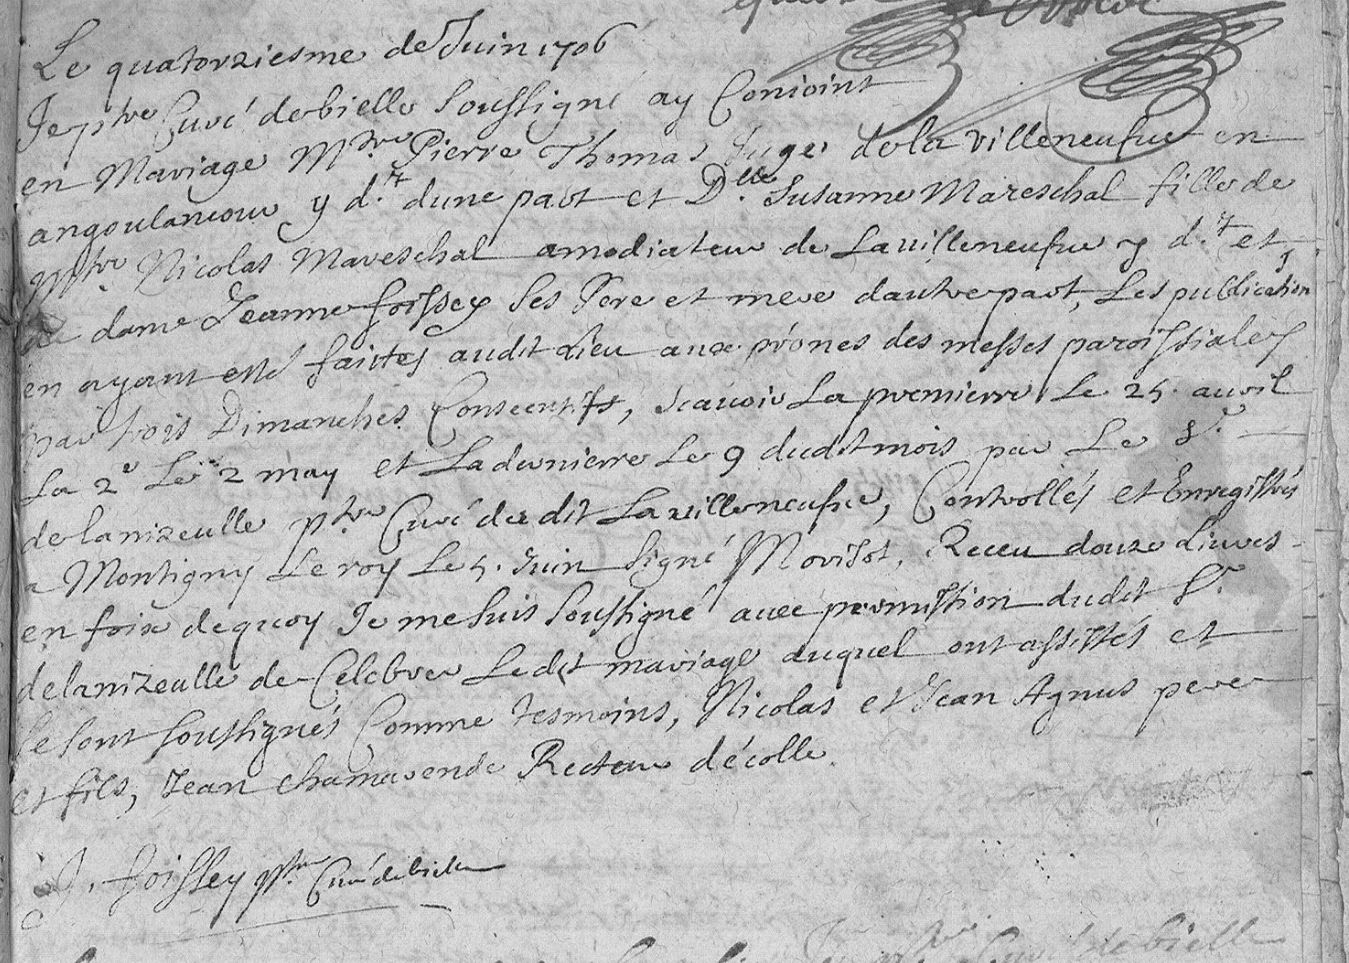 Le quatorziesme de Juin 1706
Je ptre Curé de bielle soussigné ay Conioint
en Mariage Mtre Pierre Thomas Juge de la villeneufue en
angoulancour y dt dune part et Dlle Susanne Mareschal fille de
Mtre Nicolas Mareschal amodiateur de Lavilleneufue y dt et
de dame Jeanne foissey ses Pere et mere dautre part, Les publication
en ayant esté faittes audit Lieu aux prônes des messes paroissiales
par trois Dimanches Consecutifs, scavoir La premierre Le 25. auril
La 2e Le 2 may et La dernierre Le 9 dudit mois par Le Sr
delanizeulle ptre Curé du dit La villeneufue, Controllés et Enregistrés
a Montigny Le roy Le 5. Juin signé Morisot, Receu douze Liures
en foix dequoy Je me suis soussigné auec permission dudit Sr
delanizeulle de Celebrer Ledit mariage auquel ont assistés et
se sont soussignés Comme tesmoins, Nicolas et Jean Agnus pere
et fils, Jean chamarende Recteur décolle.
J. foissey ptre Curé de bielle
Curé de bielle